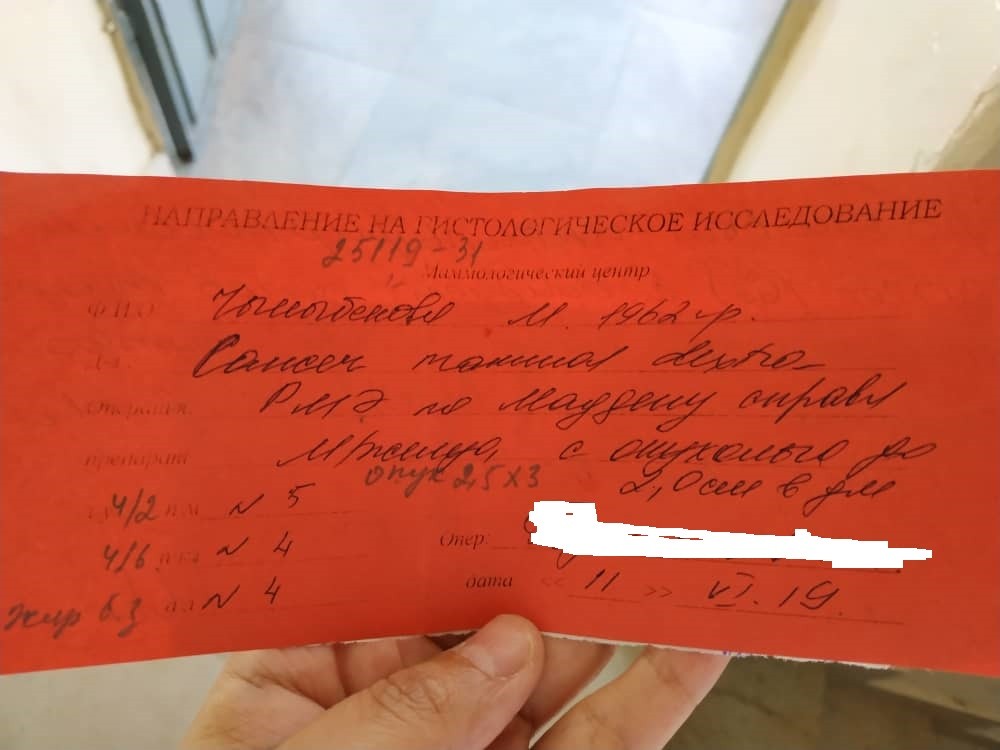 НАПРАВЛЕНИЕ НА ГИСТОЛОГИЧЕСКОЕ ИССЛЕДОВАНИЕ
25119-31
Маммологический центр
Ф.И.О. М. 1962 г.р.
Д-з: Cancer mammae dextra
Операция: РМЭ по Маддену справа
препарат М/железа, с опухолью до
опух 2,5х3 2,0 см в дм
4/2 п.м N 5
4/6 N 4
Опер:
Жир б.з а.л N 4
дата « 11 » VI. 19.